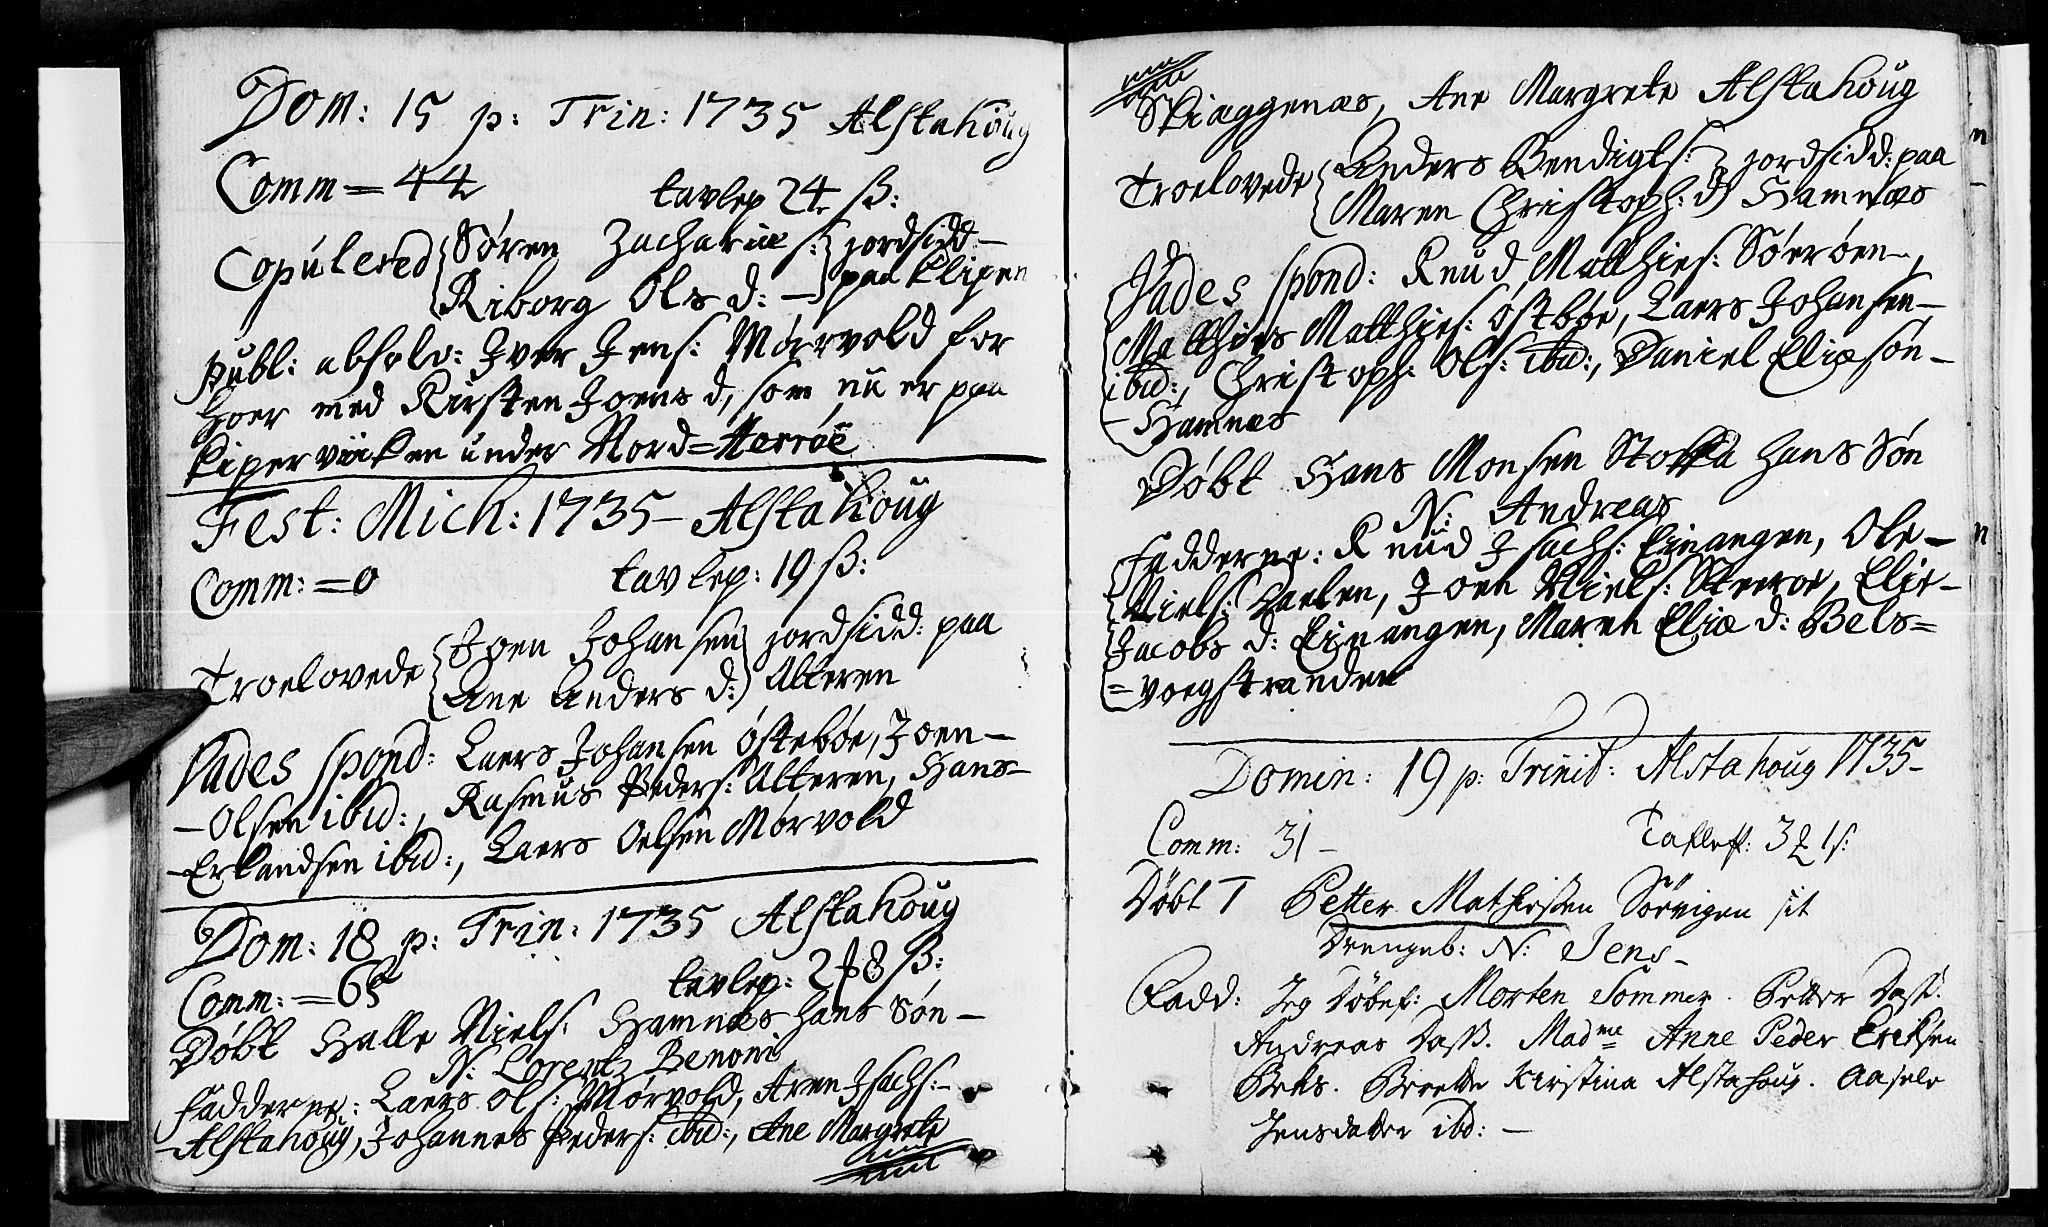 Dom: 15 p: Trin: 1735 Alstahoug
Comm = 44 tavlep 24 ß:
Copulered Søren Zachariæ s: jordsidd-
Riborg Ols d: - paa Klipen
publ: absolv: Iver Jens: Mørvold for
hoer med Kirsten Joens d, som nu er paa
Kipervviken under Nord=Herröe
Fest: Mich: 1735 - Alstahoug
Comm: = 0 tavlep: 19 ß:
Troelovede Joen Johansen jordsidd: paa
Ane Anders d: Alteren
Vades spond: Laers Johansen Östebøe, Joen-
-Olsen ibid:, Rasmus Peders: Alteren, Hans-
-Erlandsen ibid:, Laers Oelsen Mørvold
Dom: 18 p: Trin: 1735 Alstahoug
Comm: = 65 tavlep: 2 8 ß:
Døbt Halle Niels: Hamnæs hans Søn -
N: Lorentz Benoni
Fadderne: Laers Ols: Mørvold, Aren Isachs:-
-Alstahoug, Johannes Peders: ibid:, Ane Margrete
Skiaggenæs, Ane Margrete Alstahoug
Troelovede Anders Bendigts: jordsidd: paa
Maren Christoph: d Hamnæs
Vades spond: Knud Matthies: Sörröen-,
Matthies Matthies: Östbøe, Laers Johansen-
ibid:, Christoph: Ols: ibid:, Daniel Eliæsön-
-Hamnæs
Døbt Hans Monsen Stokka hans Søn
N: Andreas
Fadderne: Knud Isachs: Einangen, Ole-
Niels: , Joen Niels: , Elie-
Jacobs d: Einangen, Maren Eliæ d: Bels=
=voegstranden
Domin: 19 p: Trinit: Alstahoug 1735-
Comm: 31 - Taflep: 3 1 ß:
Døbt T Petter Mathissen Sörvigen sit
Drengeb: N: Jens-
Fadd: Morten Sommer. Petter Dass.
Andreas Dass. Madme Anne Peder Eriksen
Berette Kirstina Alstahoug. Aasele
Jensdatter ibd: -